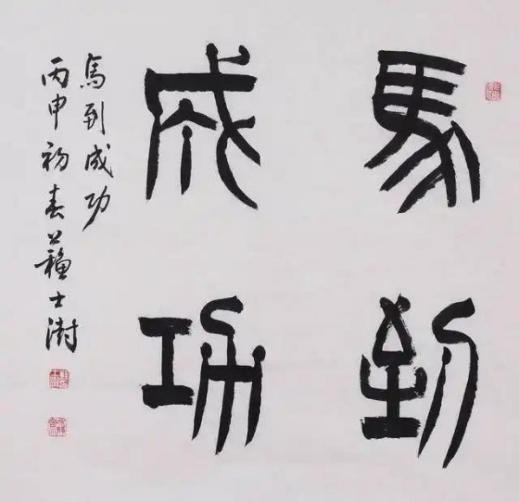 馬到
成功
馬到成功
丙申初春蘇士澍